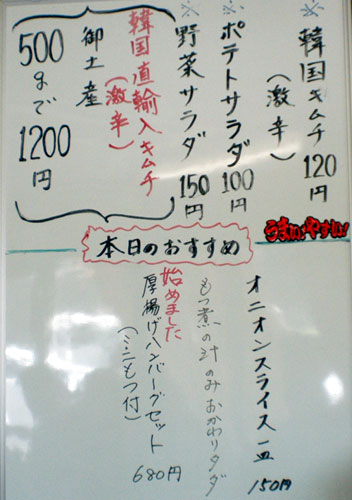 ※韓国キムチ 120円
(激辛)
※ポテトサラダ 100円
※野菜サラダ 150円
韓国直輸入キムチ
(激辛)
御土産
500gまで1200円
うまい!やすい!
本日のおすすめ
オニオンスライス一皿
150円
もつ煮の汁のみおかわりタダ
始めました
厚揚げハンバーグセット
(ミニもつ付)
680円